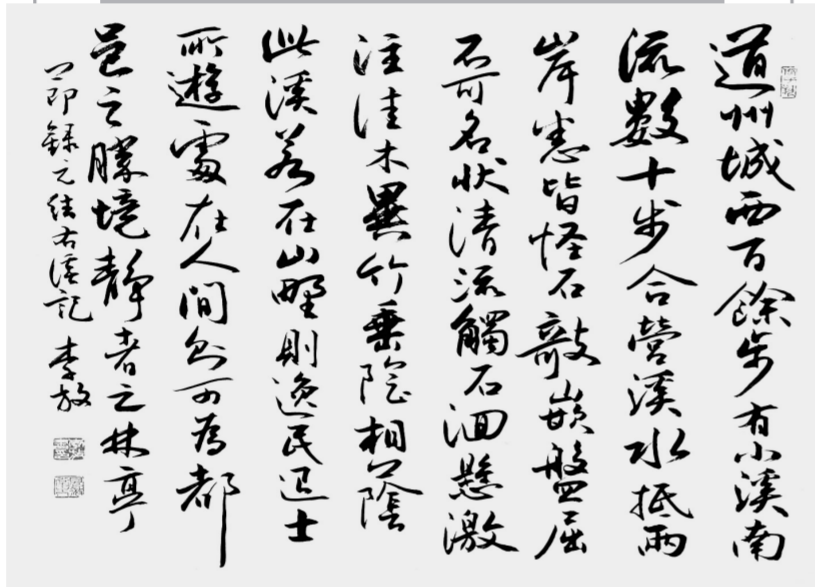 道州城西百餘步有小溪南
流數十步合營溪水抵兩
岸悉皆怪石敧嵌盤屈
不可名狀清流觸石洄懸激
注佳木異竹垂陰相蔭
此溪若在山野則逸民退士
所遊處在人間則可為都
邑之勝境靜者之林亭
上節録元結右溪記 李放